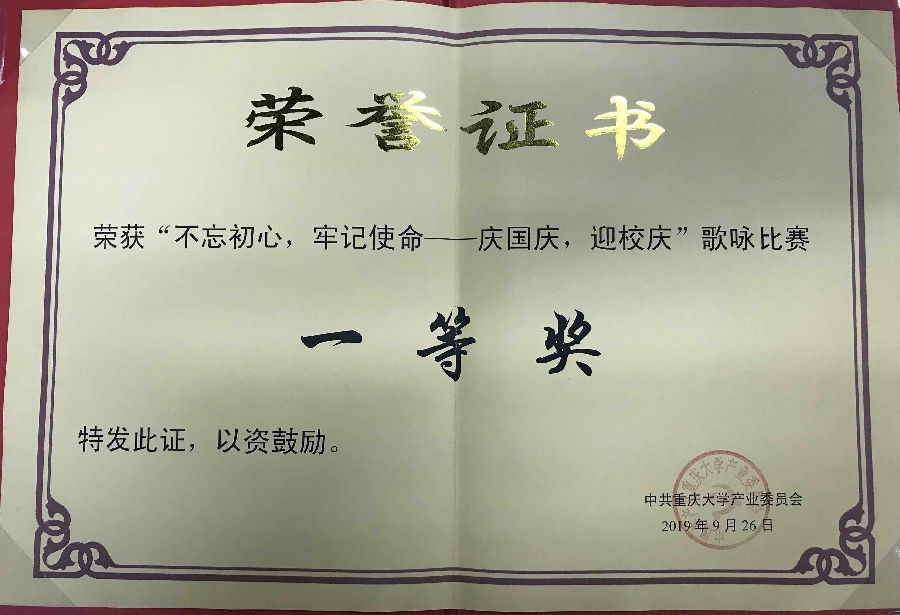 荣誉证书
荣获“不忘初心，牢记使命——庆国庆，迎校庆”歌咏比赛
一等奖
特发此证，以资鼓励。
中共重庆大学产业委员会
2019年9月26日